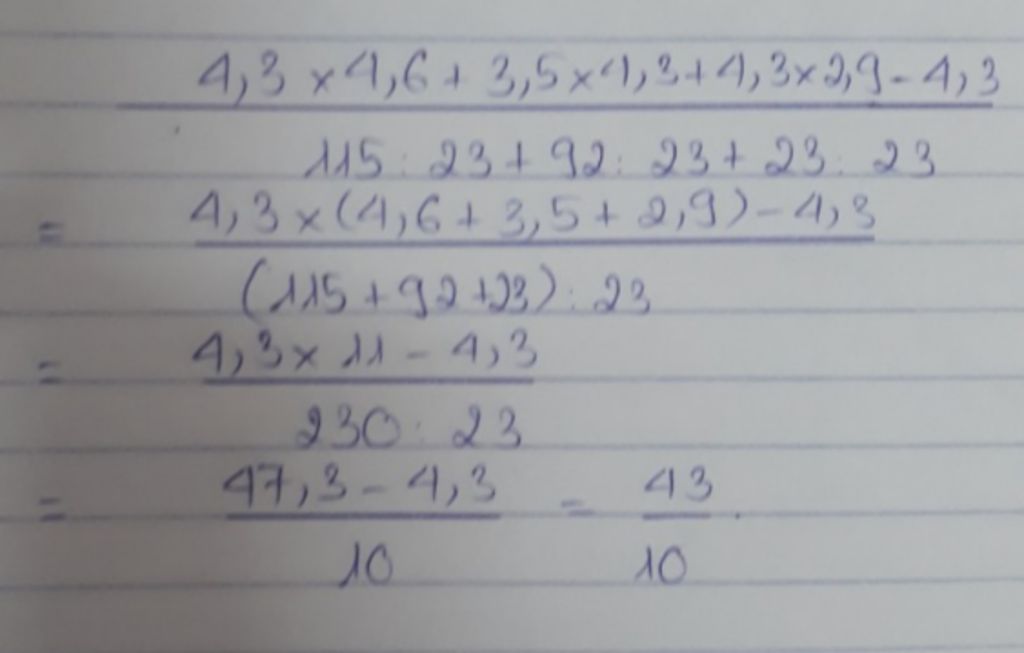 4,3 × 4,6 + 3,5 × 4,3 + 4,3 × 2,9 - 4,3
115 : 23 + 92 : 23 + 23 : 23
= 4,3 × (4,6 + 3,5 + 2,9) - 4,3
(115 + 92 + 23) : 23
= 4,3 × 11 - 4,3
230 : 23
= 47,3 - 4,3 = 43
10 10